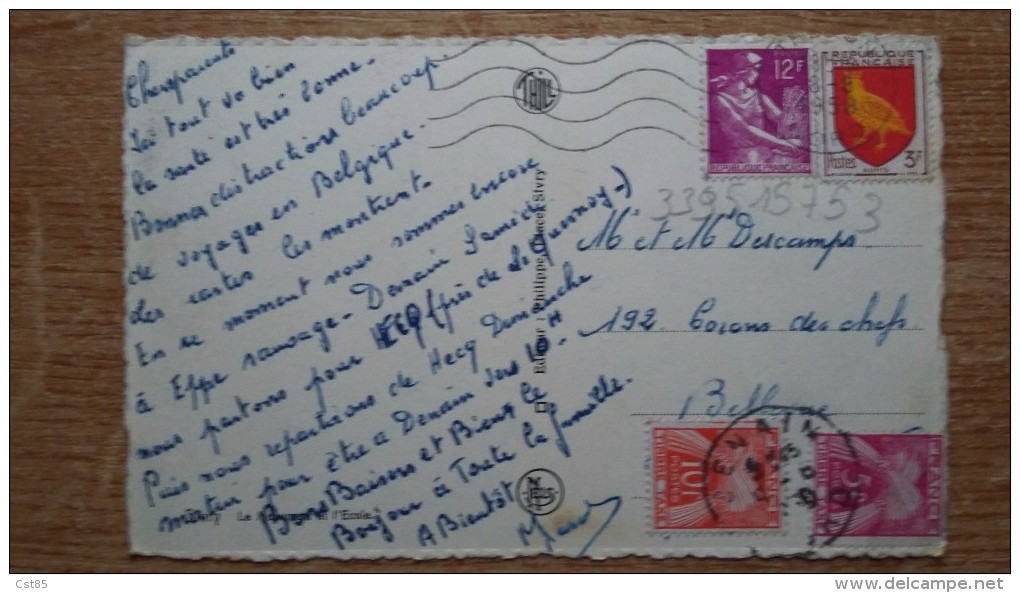 Chers parents
Ici tout va bien
la santé est très bonne.
Bonnes distractions beaucoup
de voyages en Belgique.
Les cartes les montrent.
En ce moment nous sommes encore
à Eppe sauvage - Demain Samedi
nous partons pour HECQ (près de Le Quesnoy-)
Puis nous repartirons de Hecq Dimanche
matin pour être à Denain vers 10 H
Bons Baisers et Bien le
Bonjour à Toute la famille.
A Bientôt
THILL
12F
REPUBLIQUE FRANÇAISE
REPUBLIQUE
FRANÇAISE
Postes
3F
AUNIS
3395 15753
Mr et Mme Descamps
192 Corons des chefs
Bellevue
Editeur : Philippe Lancee, Sivry
Le l'Ecole
NELS
DENAIN
FRANCE
10F
POSTES
FRANCE
5F
Cst85
www.delcampe.net